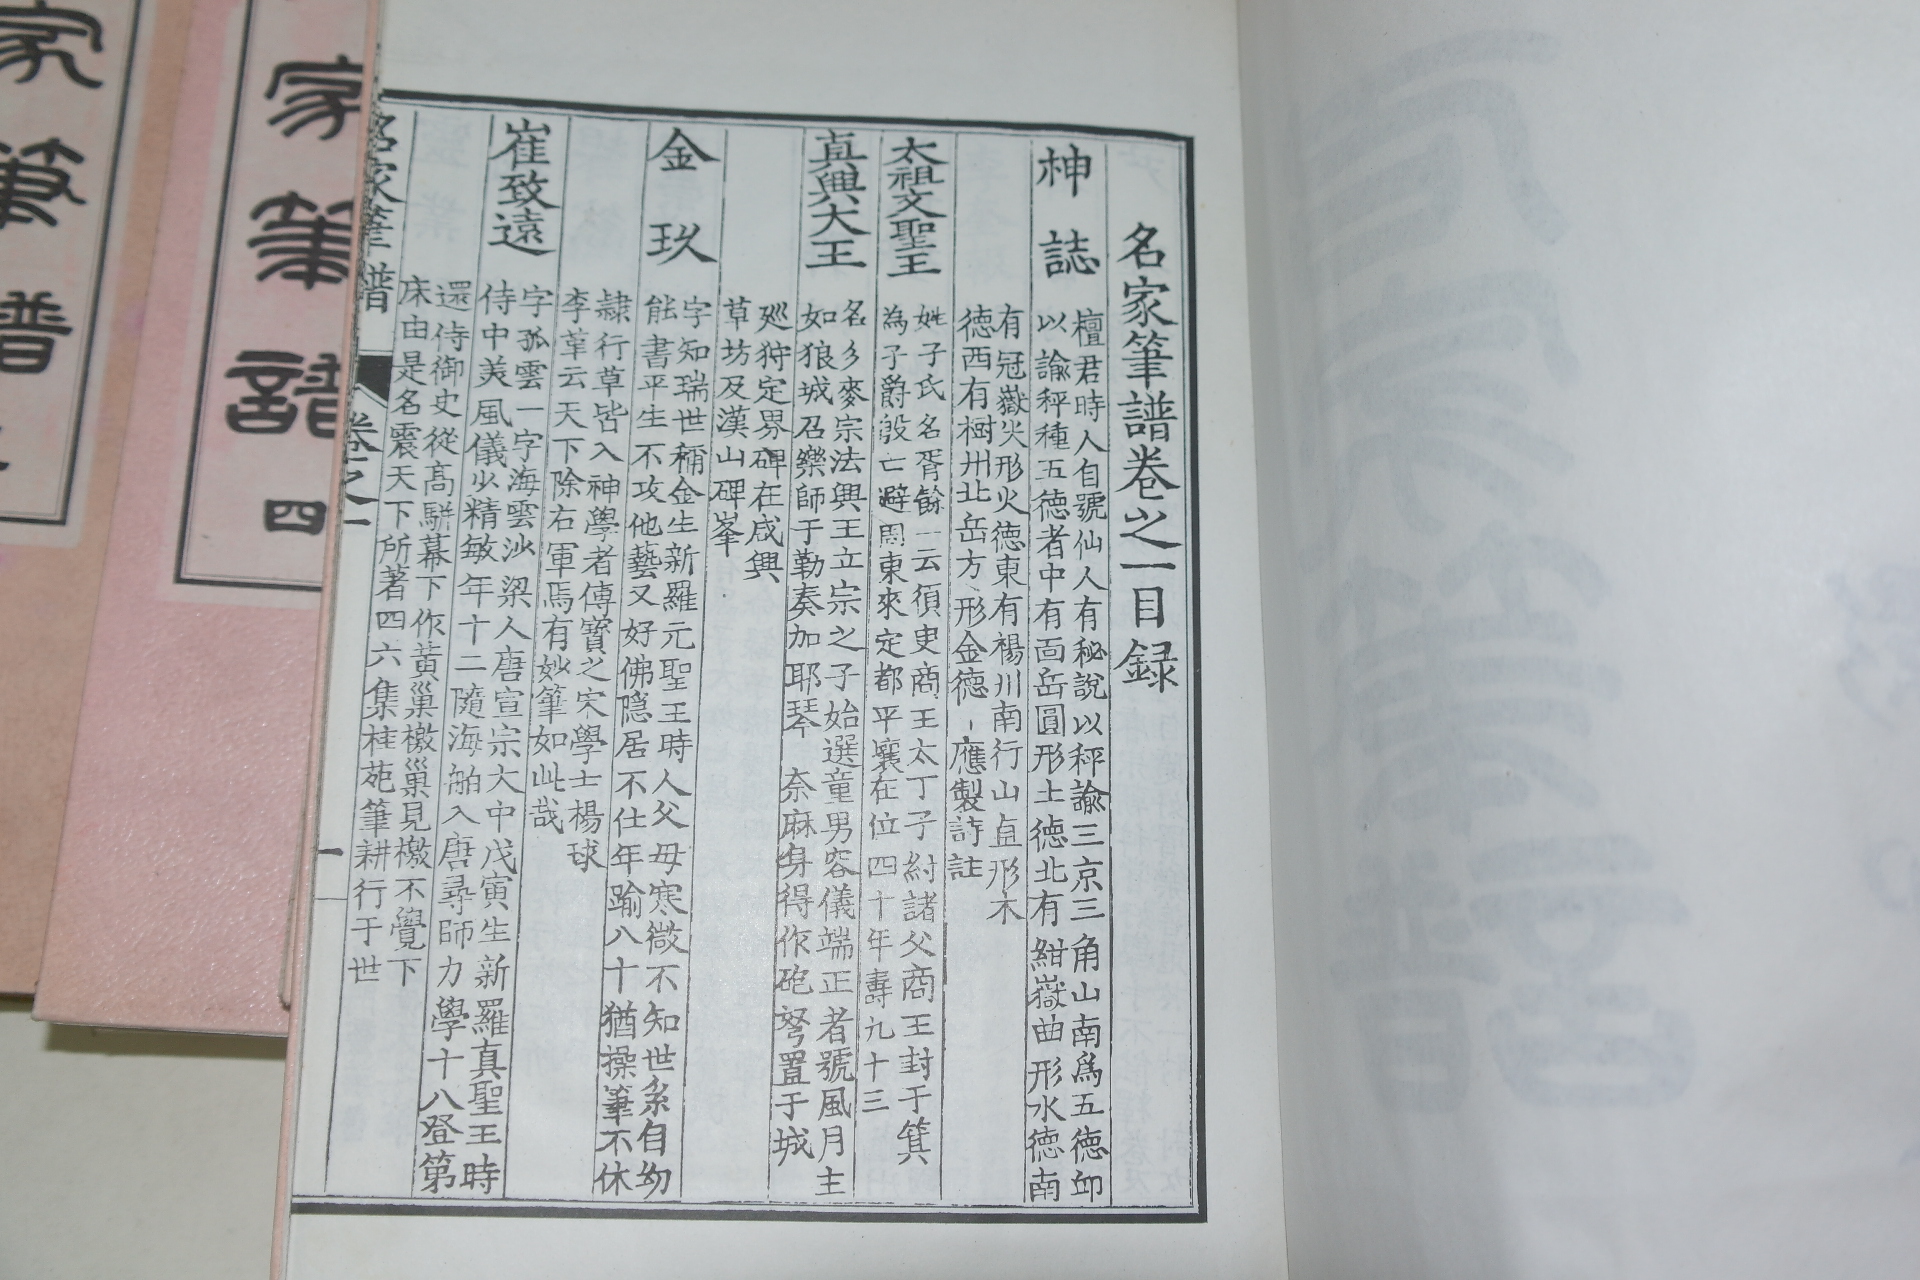 名家筆譜卷之一目録
神誌
檀君時人自號仙人有秘說以秤諭三京三角山南爲五德丘
以諭秤種五德者中有面岳圓形土德北有紺嶽曲形水德南
有冠嶽火形火德東有楊州南行山直形木
德西有樹州北岳方形金德應製詩註
太祖文聖王
姓子氏名胥餘一云須臾商王太丁子紂諸父商王封于箕
為子爵殷亡避周東來定都平壤在位四十年壽九十三
真興大王
名彡麥宗法興王立宗之子始選童男容儀端正者號風月主
如狼城召樂師于勒奏加耶琴 奈麻身得作砲弩置于城
廵狩定界碑在咸興
草坊及漢山碑峯
金玖
字知瑞世稱金生新羅元聖王時人父母寒微不知世系自幼
能書平生不攻他藝又好佛隠居不仕年踰八十猶操筆不休
隷行草皆入神學者傳寶之宋學士楊球
李革云天下除右軍焉有妙筆如此哉
崔致遠
字孤雲一字海雲沙梁人唐宣宗大中戊寅生新羅真聖王時
侍中美風儀少精敏年十二隨海舶入唐尋師力學十八登第
還侍御史從髙駢幕下作黃巢檄巢見檄不覺下
床由是名震天下所著四六集桂苑筆耕行于世
名家筆譜
卷之一
一
家筆譜
四
家筆譜